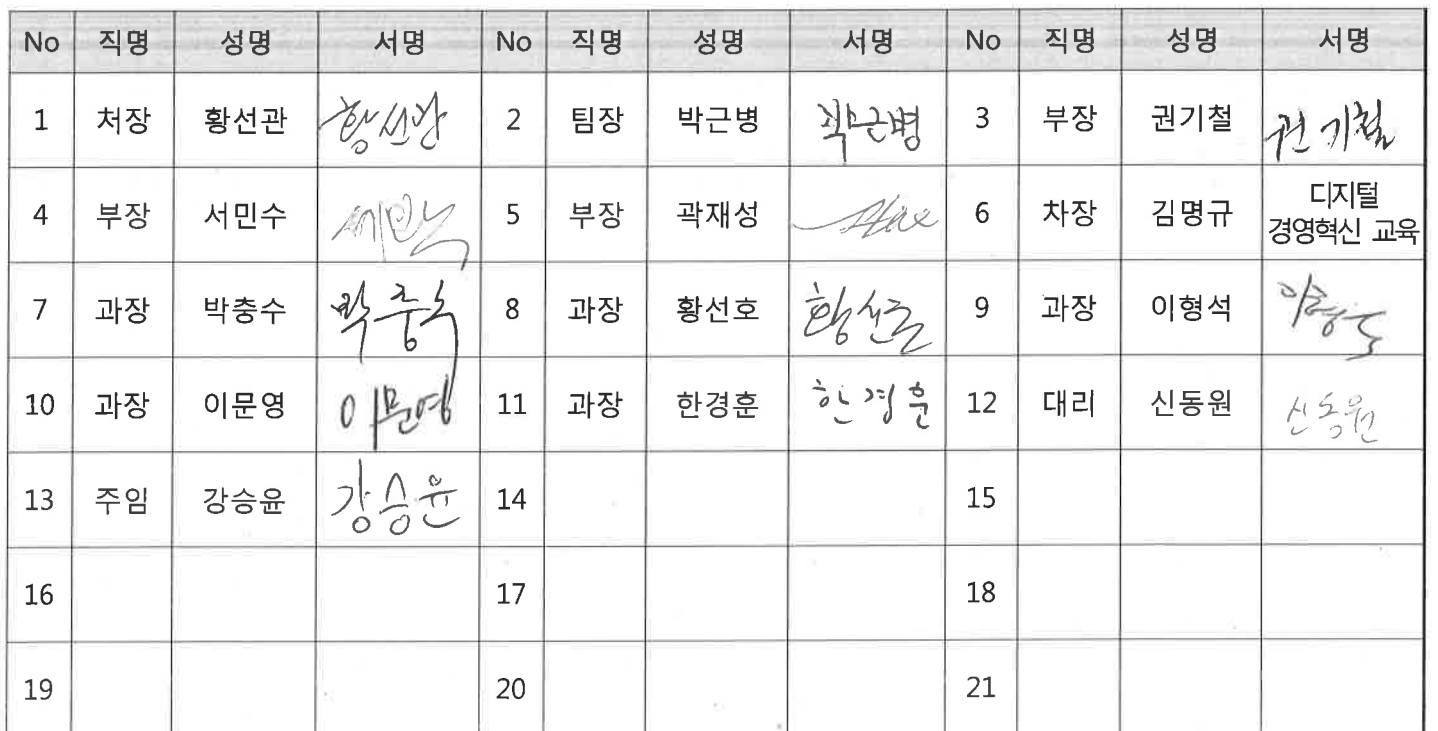 No 직명 성명 서명 No 직명 성명 서명 No 직명 성명 서명
1 처장 황선관 황선관 2 팀장 박근병 박근병 3 부장 권기철 권기철
4 부장 서민수 서민수 5 부장 곽재성 6 차장 김명규 디지털
경영혁신 교육
7 과장 박충수 박충수 8 과장 황선호 황선호 9 과장 이형석 이형석
10 과장 이문영 이문영 11 과장 한경훈 한경훈 12 대리 신동원 신동원
13 주임 강승윤 강승윤 14 15
16 17 18
19 20 21